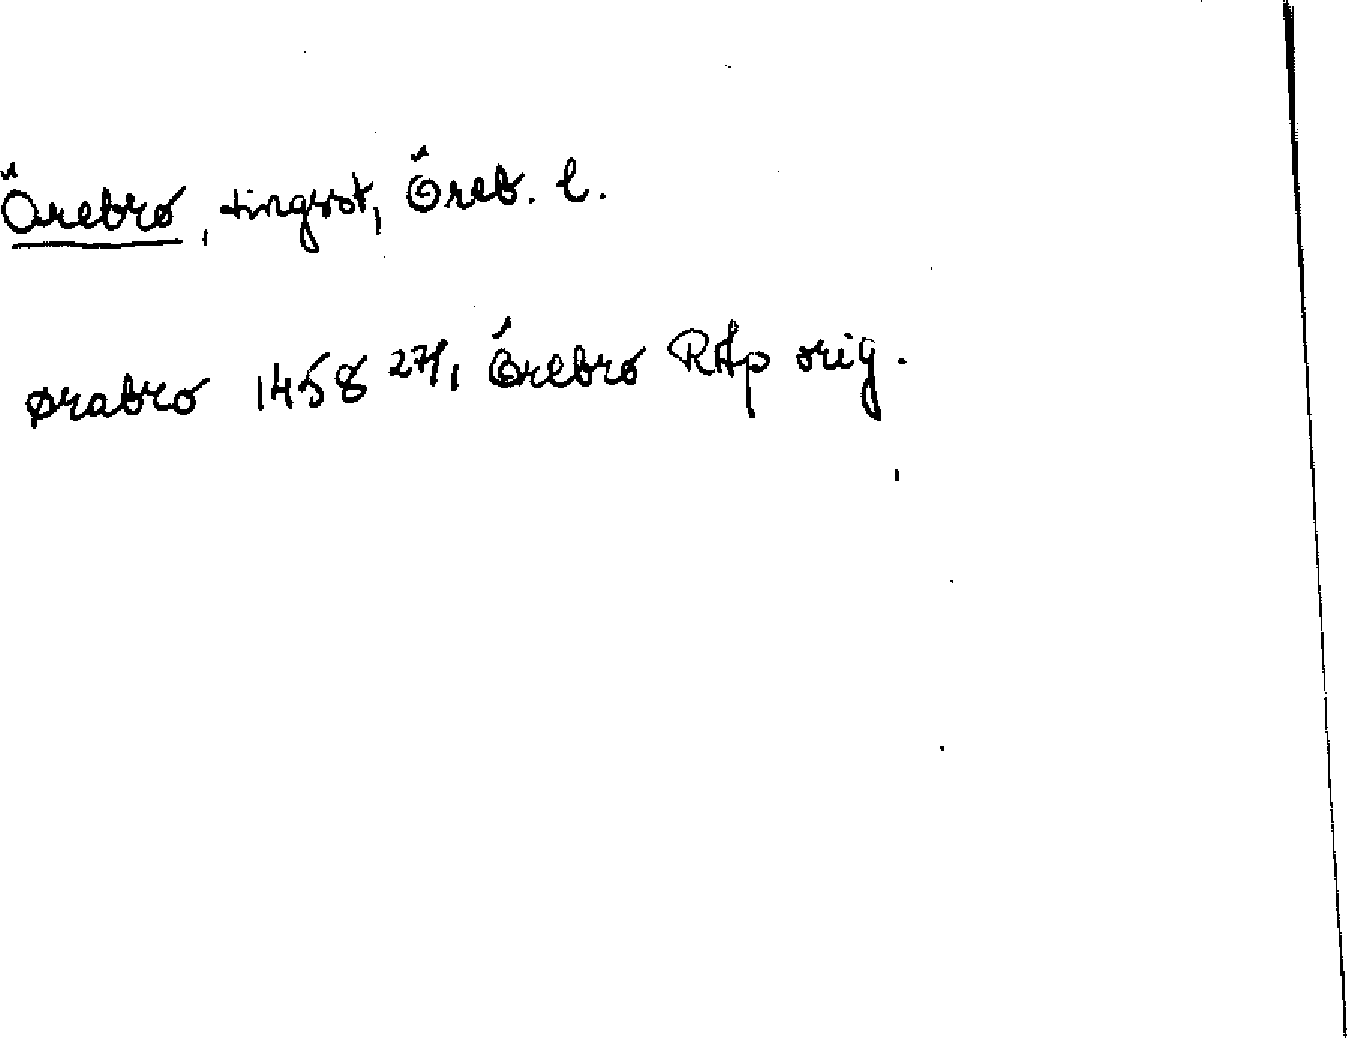 Örebro, tingsst, Öreb. l.
ørabro 1458 27/1 Örebro RAp orig.